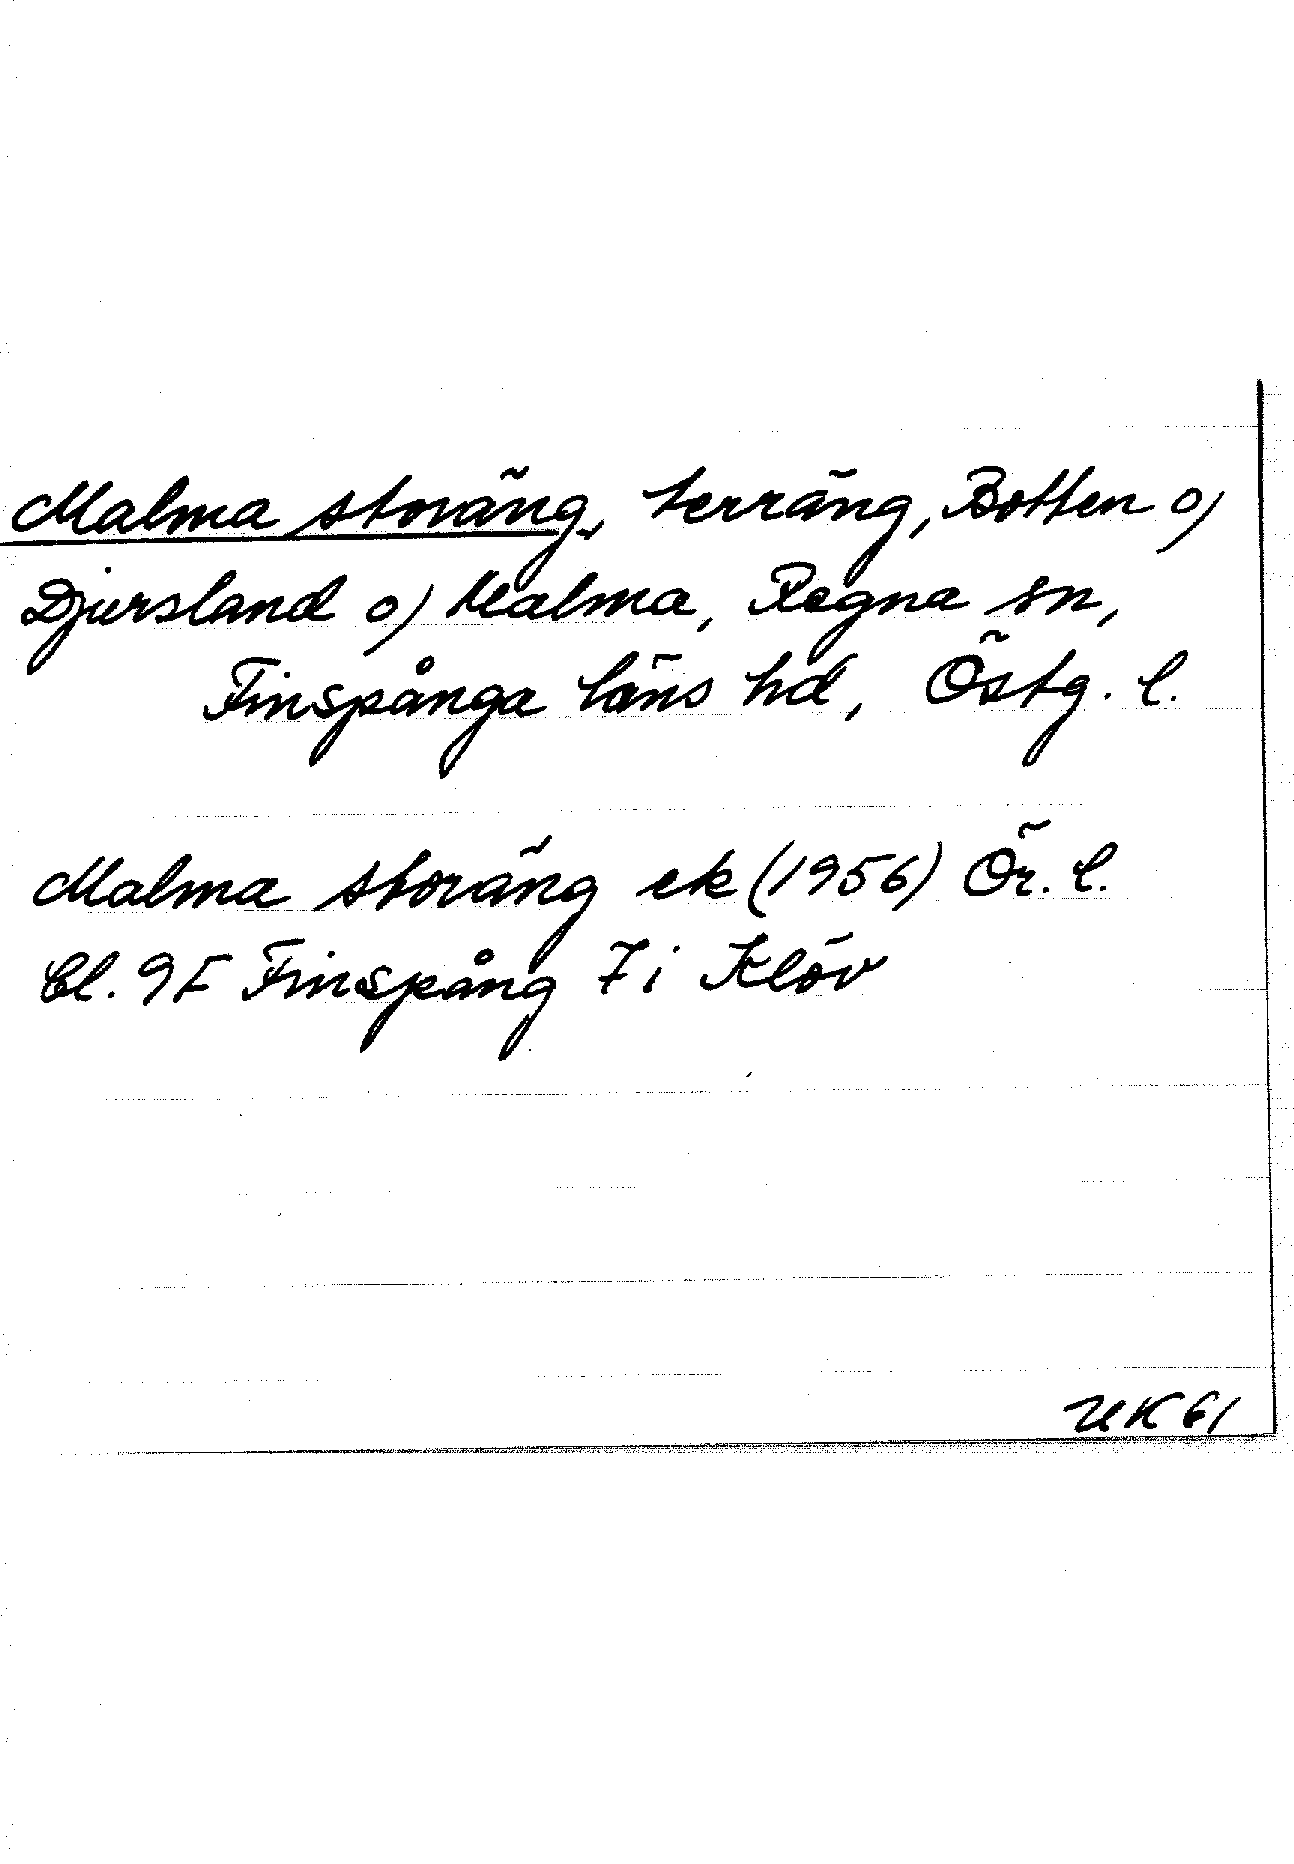 Malma storäng, terräng, Botten o)
Djursland o) Malma, Regna sn,
Finspånga läns hd, Östg. l.
Malma storäng ek (1956) Ör. l.
Bl. 9F Finspång 7 i Klöv
UK 61